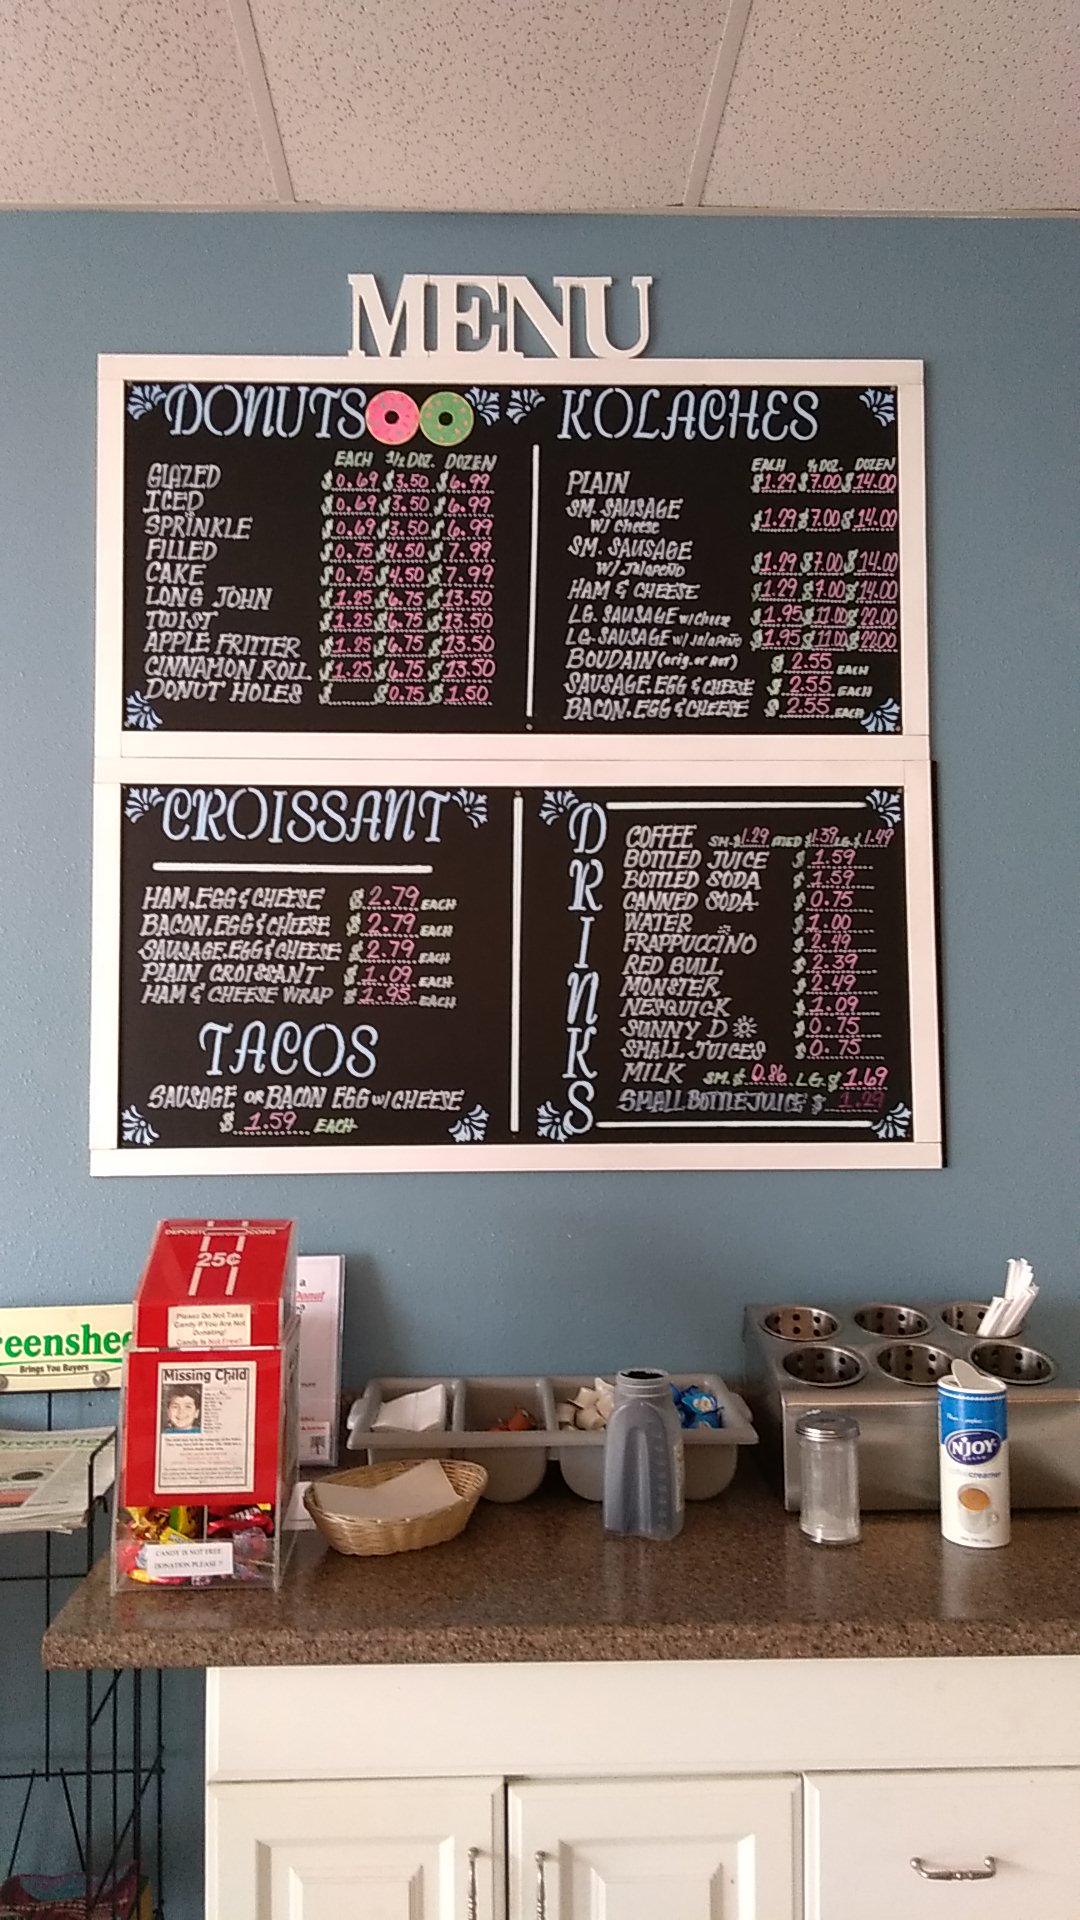 MENU
DONUTS
EACH 1/2 DOZ. DOZEN
GLAZED $0.69 $3.50 $6.99
ICED $0.69 $3.50 $6.99
SPRINKLE $0.69 $3.50 $6.99
FILLED $0.75 $4.50 $7.99
CAKE $0.75 $4.50 $7.99
LONG JOHN $1.25 $6.75 $13.50
TWIST $1.25 $6.75 $13.50
APPLE FRITTER $1.25 $6.75 $13.50
CINNAMON ROLL $1.25 $6.75 $13.50
DONUT HOLES $ $0.75 $1.50
KOLACHES
EACH ½ DOZ. DOZEN
PLAIN $1.29 $7.00 $14.00
SM. SAUSAGE
W/ Cheese $1.29 $7.00 $14.00
SM. SAUSAGE
W/ JALAPEÑO $1.29 $7.00 $14.00
HAM & CHEESE $1.29 $7.00 $14.00
LG. SAUSAGE w/ Cheese $1.95 $11.00 $22.00
LG. SAUSAGE w/ Jalapeño $1.95 $11.00 $22.00
BOUDAIN (orig. or hot) $ 2.55 EACH
SAUSAGE, EGG & CHEESE $ 2.55 EACH
BACON, EGG & CHEESE $ 2.55 EACH
CROISSANT
HAM, EGG & CHEESE $ 2.79 EACH
BACON, EGG & CHEESE $ 2.79 EACH
SAUSAGE, EGG & CHEESE $ 2.79 EACH
PLAIN CROISSANT $ 1.09 EACH
HAM & CHEESE WRAP $ 1.95 EACH
TACOS
SAUSAGE OR BACON EGG w/ CHEESE
$ 1.59 EACH
DRINKS
COFFEE SM. $1.29 MED $1.39 LG. $1.49
BOTTLED JUICE $ 1.59
BOTTLED SODA $ 1.59
CANNED SODA $ 0.75
WATER $ 1.00
FRAPPUCCINO $ 2.49
RED BULL $ 2.39
MONSTER $ 2.49
NESQUICK $ 1.09
SUNNY D $ 0.75
SMALL JUICES $ 0.75
MILK SM. $ 0.86 LG. $ 1.69
SMALL BOTTLE JUICE $ 1.29
DEPOSIT COINS
25¢
Please Do Not Take
Candy If You Are Not
Donating!
Candy Is Not Free!!
Missing Child
CANDY IS NOT FREE
DONATION PLEASE !!
eenshee
Brings You Buyers
a
Donut
?
N'JOY
creamer